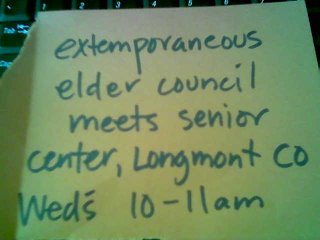 extemporaneous
elder council
meets senior
center, Longmont CO
Wed's 10-11am